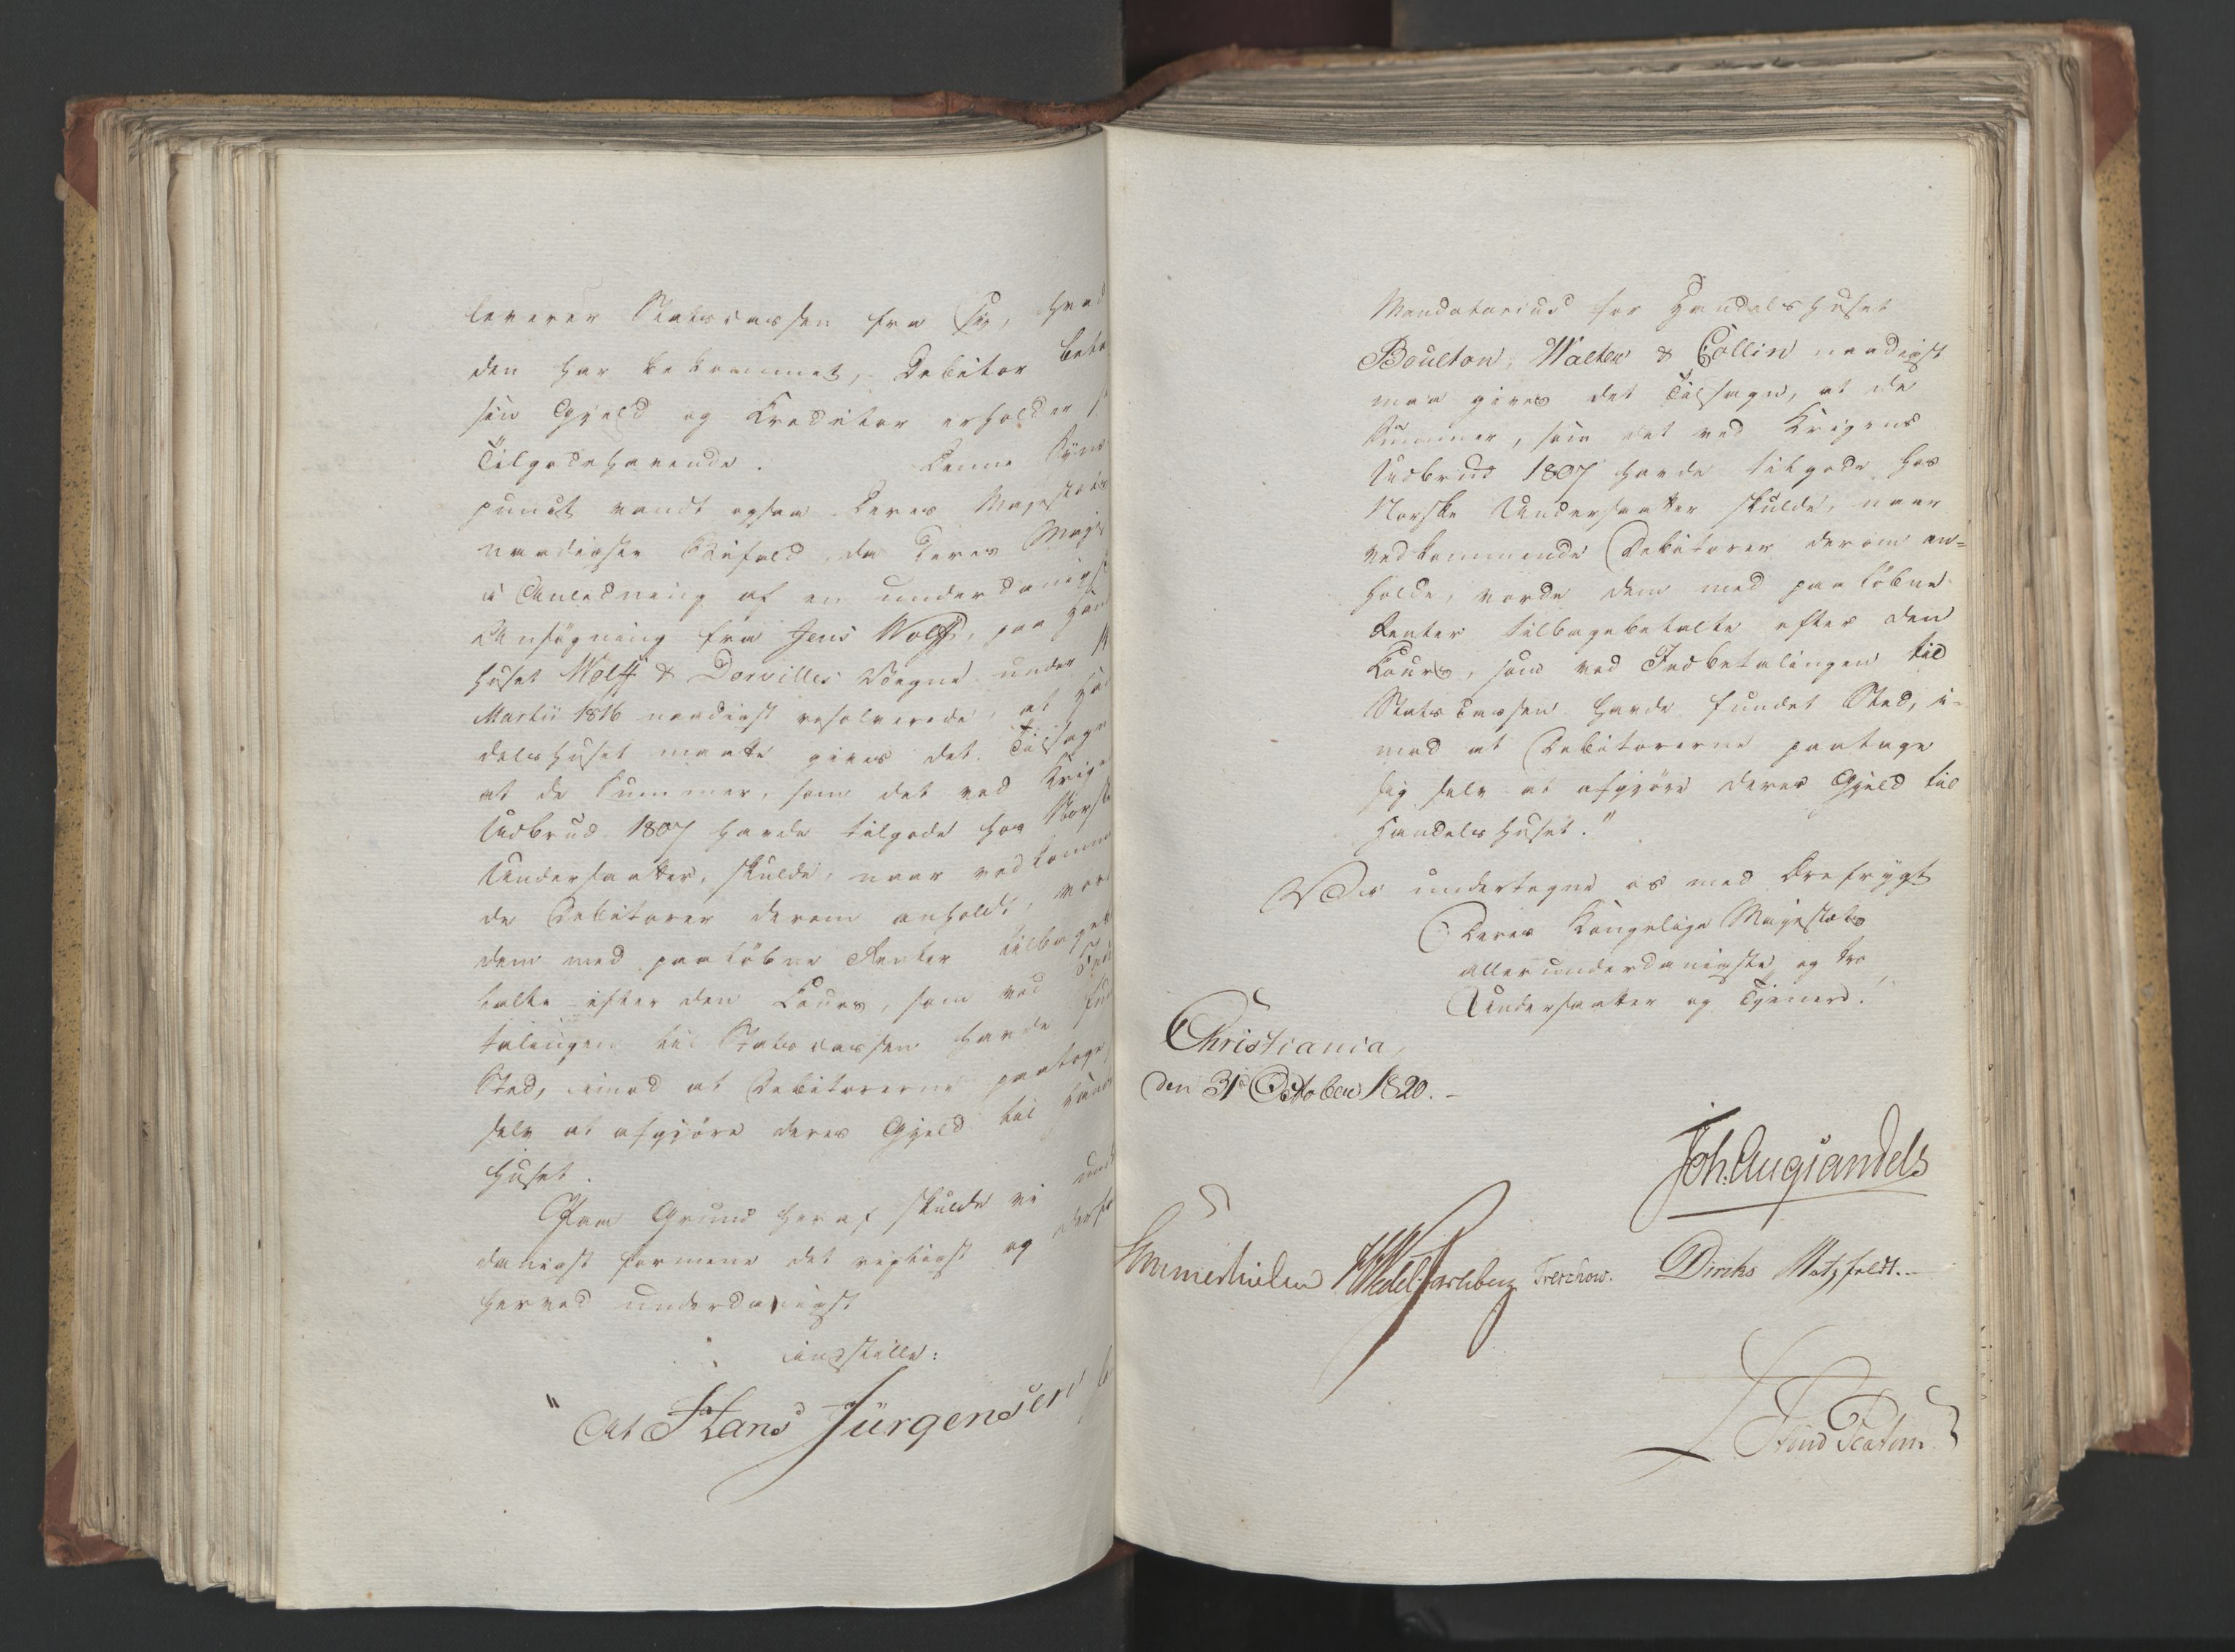 leverer Statscassen fra sig, hvad
den har bekommet, Debitor beta
sin Gjeld og Kreditor erholder s
Tilgodehavende. Denne Syns
punct vandt ogsaa Deres Majestæts
naadigste Bifald, da Deres Maje
i Anledning af en underdanigst
Ansøgning fra Jens Wolff, paa Han
huset Wolff & Dorvilles Vegne under
Martii 1816 naadigst resolverede, at Ha
delshuset maatte gives det Tilsagn
at de Summer, som det ved Krige
Udbrud 1807 havde tilgode hos Norske
Undersaatter, skulde, naar vedkomme
de Debitorer derom anholdt, vor
dem med paaløbne Renter tilbagebe
talte efter den Cours, som ved Indbe
talingen til Statscassen havde fun
Sted, imod at Debitorerne paatoge
selv at afgjøre deres Gjeld til Hand
huset.
Paa Grund heraf skulde vi und
danigst formene det rigtigst og derfor
herved underdanigst
indstille:
"At Hans Jürgensen
Mandatarius for Handelshuset
Boulton, Walter & Collin naadigst
maa gives det Tilsagn, at de
Summer, som det ved Krigens
Udbrud 1807 havde tilgode hos
Norske Undersaatter skulde, naar
vedkommende Debitorer derom an=
holde, vorde dem med paaløbne
Renter tilbagebetalte efter den
Cours, som ved Indbetalingen til
Statscassen havde fundet Sted, i-
mod at Debitorerne paatage
sig selv at afgjøre deres Gjeld til
Handelshuset."
Vi undertegne os med Ærefrygt
Deres Kongelige Majestæts
allerunderdanigste og tro
Undersaatter og Tjenere.
Christiania,
den 31 October 1820. -
Joh. Aug Sandels
Sommerhielm HWedel Jarlsberg Treschow. Diriks Motzfeldt.-